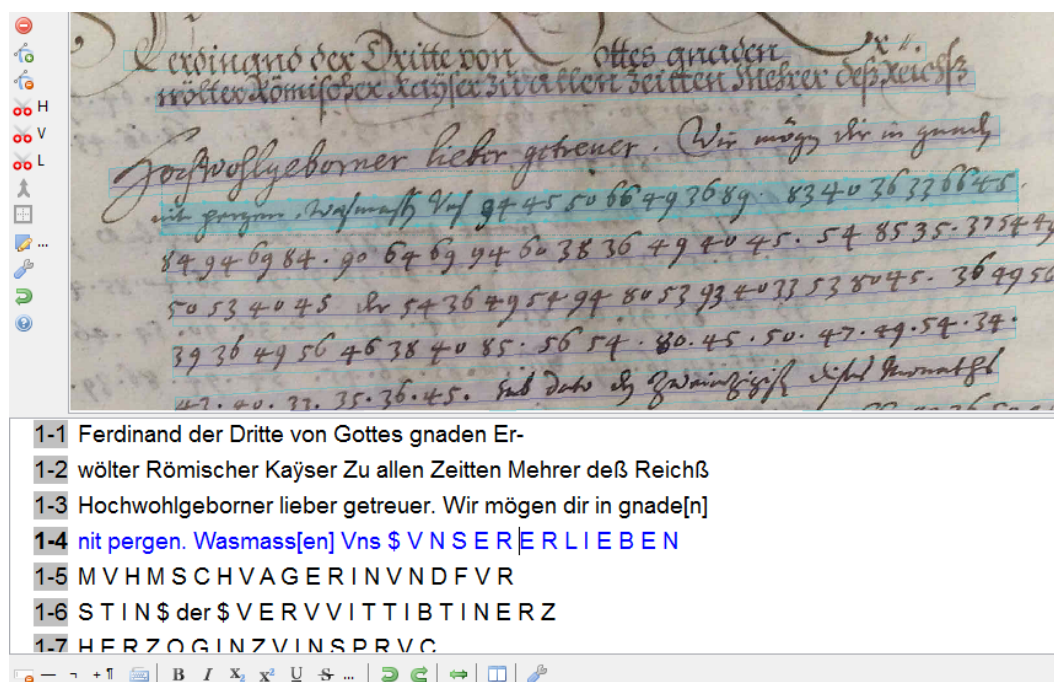 H
V
L
...
Ferdinand der Dritte von Gottes gnaden Er-
wölter Römischer Kaÿser Zu allen Zeitten Mehrer deß Reichß
Hochwohlgeborner lieber getreuer. Wir mögen dir in gnade
nit pergen. Wasmass Vns 94 45 50 66 49 36 89. 83 40 36 33 66 45.
84 94 69 84. 90 64 69 94 60 38 36 49 40 45. 54 85 35. 37 54 49
50 53 40 45 der 54 36 49 54 94 80 53 93 40 33 53 80 45. 36 49 56
39 36 49 56 46 38 40 85. 56 54. 80. 45. 50. 47. 49. 54. 34.
35. 36. 45. dato Monaths
1-1 Ferdinand der Dritte von Gottes gnaden Er-
1-2 wölter Römischer Kaÿser Zu allen Zeitten Mehrer deß Reichß
1-3 Hochwohlgeborner lieber getreuer. Wir mögen dir in gnade[n]
1-4 nit pergen. Wasmass[en] Vns $ V N S E R E R L I E B E N
1-5 M V H M S C H V A G E R I N V N D F V R
1-6 S T I N $ der $ V E R V V I T T I B T I N E R Z
1-7 H E R Z O G I N Z V I N S P R V C
B I X₂ X² U S ...